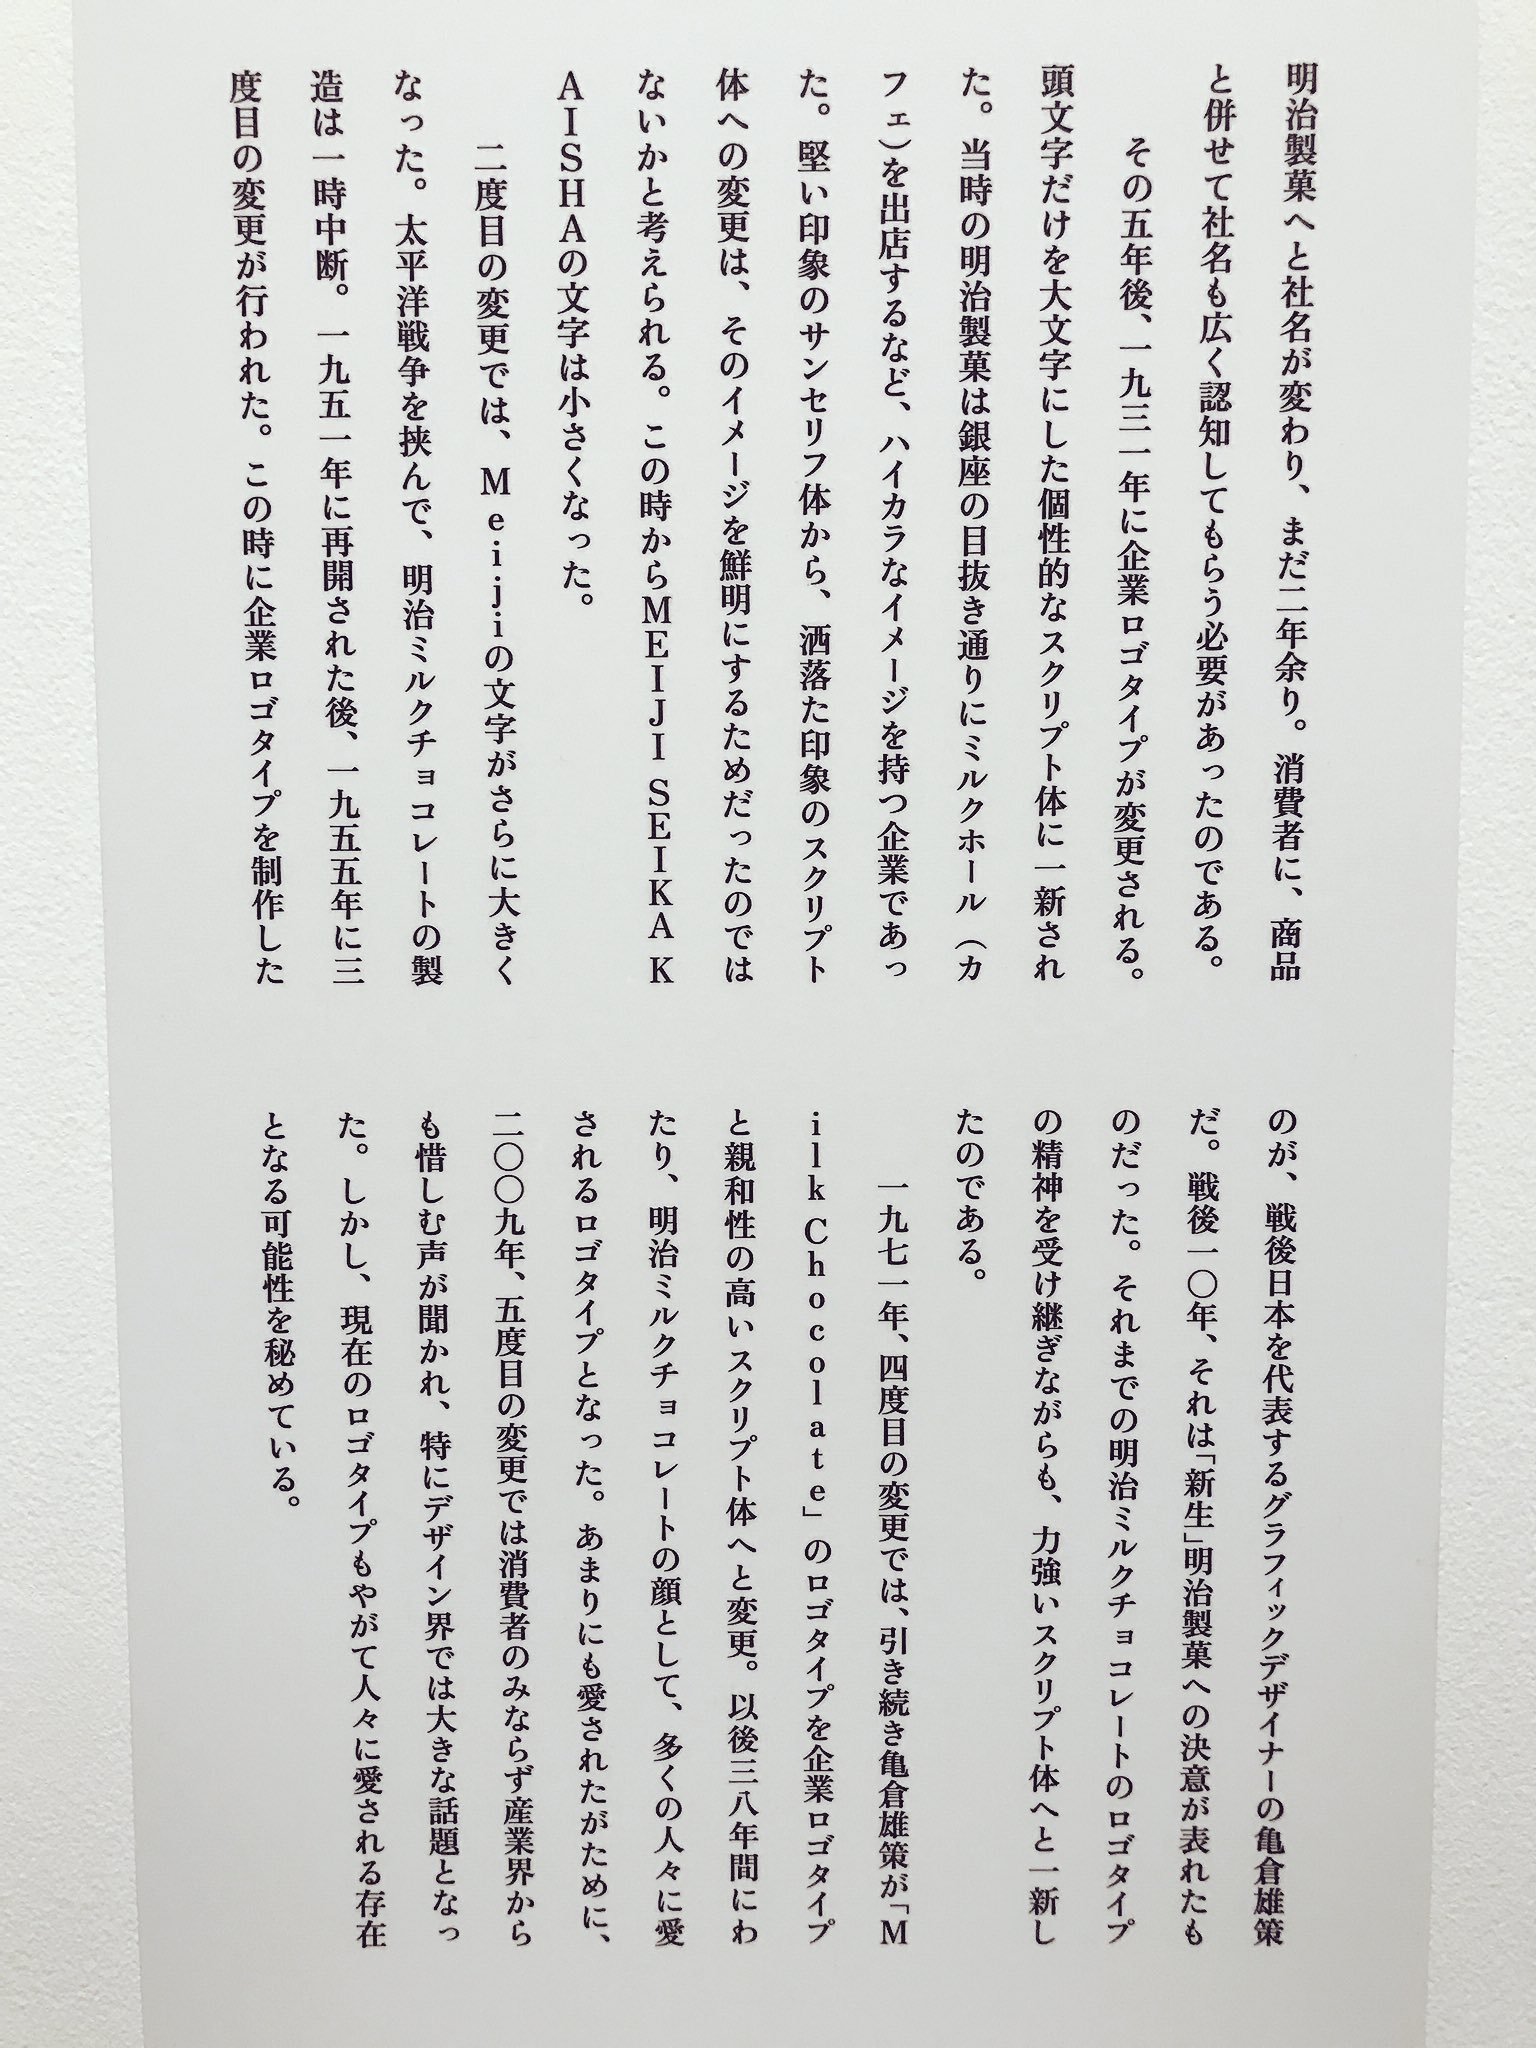 明治製菓へと社名が変わり、まだ二年余り。消費者に、商品
と併せて社名も広く認知してもらう必要があったのである。
その五年後、一九三一年に企業ロゴタイプが変更される。
頭文字だけを大文字にした個性的なスクリプト体に一新され
た。当時の明治製菓は銀座の目抜き通りにミルクホール（カ
フェ）を出店するなど、ハイカラなイメージを持つ企業であっ
た。堅い印象のサンセリフ体から、洒落た印象のスクリプト
体への変更は、そのイメージを鮮明にするためだったのでは
ないかと考えられる。この時からMEIJI SEIKA K
AISHAの文字は小さくなった。
二度目の変更では、Meijiの文字がさらに大きく
なった。太平洋戦争を挟んで、明治ミルクチョコレートの製
造は一時中断。一九五一年に再開された後、一九五五年に三
度目の変更が行われた。この時に企業ロゴタイプを制作した
のが、戦後日本を代表するグラフィックデザイナーの亀倉雄策
だ。戦後一〇年、それは「新生」明治製菓への決意が表れたも
のだった。それまでの明治ミルクチョコレートのロゴタイプ
の精神を受け継ぎながらも、力強いスクリプト体へと一新し
たのである。
一九七一年、四度目の変更では、引き続き亀倉雄策が「M
ilk Chocolate」のロゴタイプを企業ロゴタイプ
と親和性の高いスクリプト体へと変更。以後三八年間にわ
たり、明治ミルクチョコレートの顔として、多くの人々に愛
されるロゴタイプとなった。あまりにも愛されたがために、
二〇〇九年、五度目の変更では消費者のみならず産業界から
も惜しむ声が聞かれ、特にデザイン界では大きな話題となっ
た。しかし、現在のロゴタイプもやがて人々に愛される存在
となる可能性を秘めている。